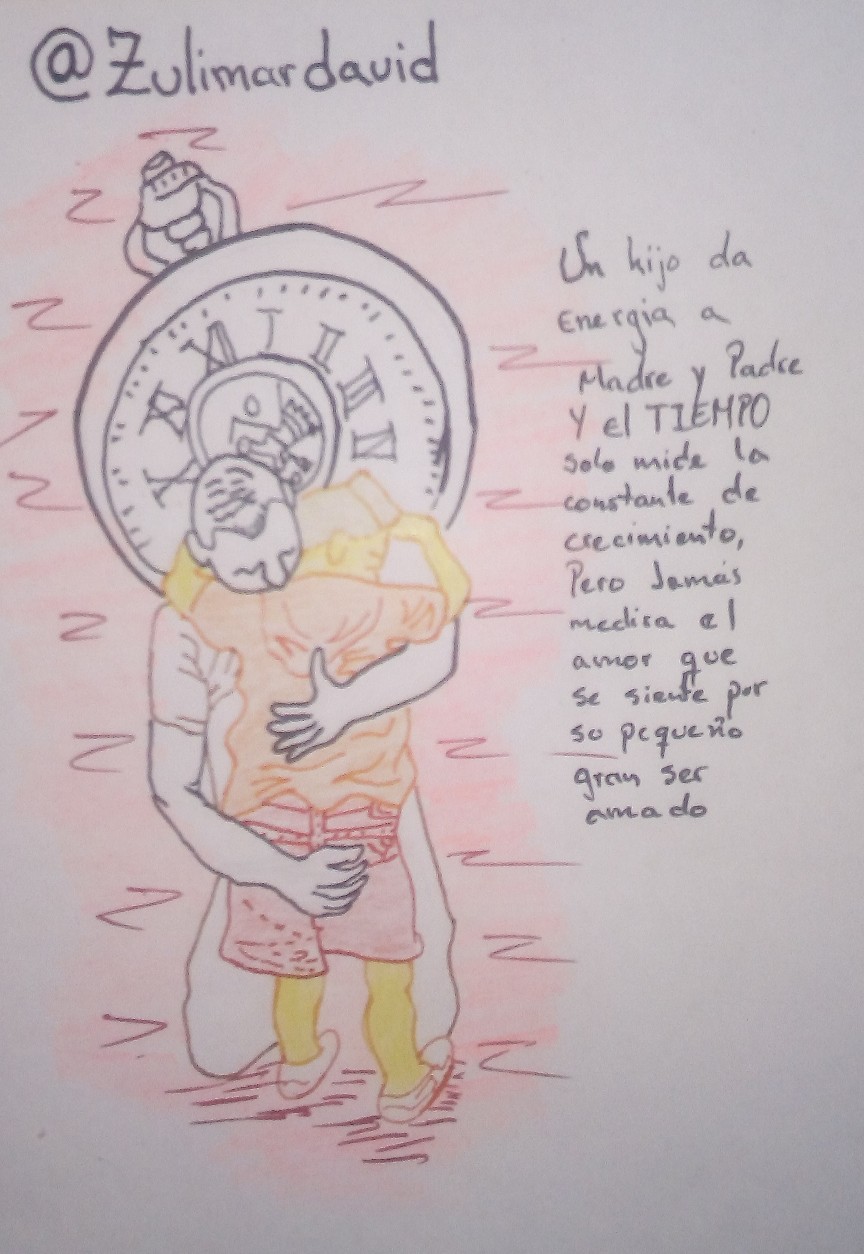 @Zulimardavid
XII I II III IV
XI
X
Un hijo da
Energia a
Madre y Padre
Y el TIEMPO
solo mide la
constante de
crecimiento,
Pero Jamás
medira el
amor que
se siente por
su pequeño
gran ser
amado